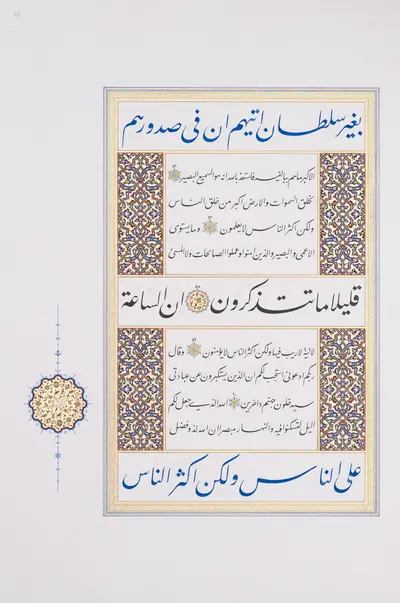 بغیر سلطان اتیهم ان فی صدورهم
الا کبر ما هم ببالغیه فاستعذ بالله انه هو السمیع البصیر
لخلق السموات والارض اکبر من خلق الناس
ولکن اکثر الناس لا یعلمون وما یستوی
الاعمی والبصیر والذین امنوا وعملوا الصالحات ولا المسئ
قلیلا ما تتذکرون ان الساعة
لاتیة لا ریب فیها ولکن اکثر الناس لا یؤمنون وقال
ربکم ادعونی استجب لکم ان الذین یستکبرون عن عبادتی
سیدخلون جهنم داخرین الله الذی جعل لکم
الیل لتسکنوا فیه والنهار مبصرا ان الله لذو فضل
علی الناس ولکن اکثر الناس